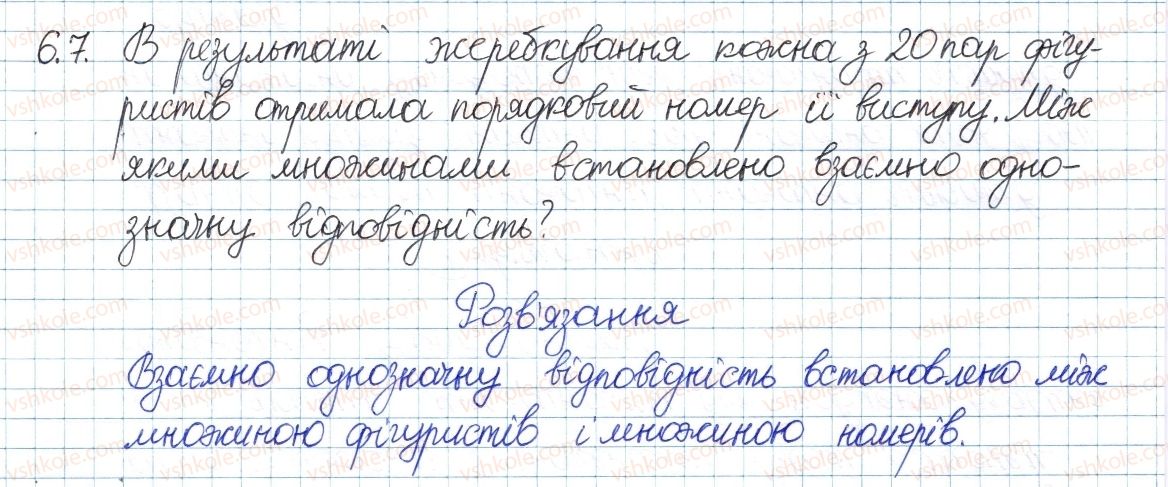 6.7. В результаті жеребкування кожна з 20 пар фігу-
ристів отримала порядковий номер її виступу. Між
якими множинами встановлено взаємно одно-
значну відповідність?
Розв'язання
Взаємно однозначну відповідність встановлено між
множиною фігуристів і множиною номерів.